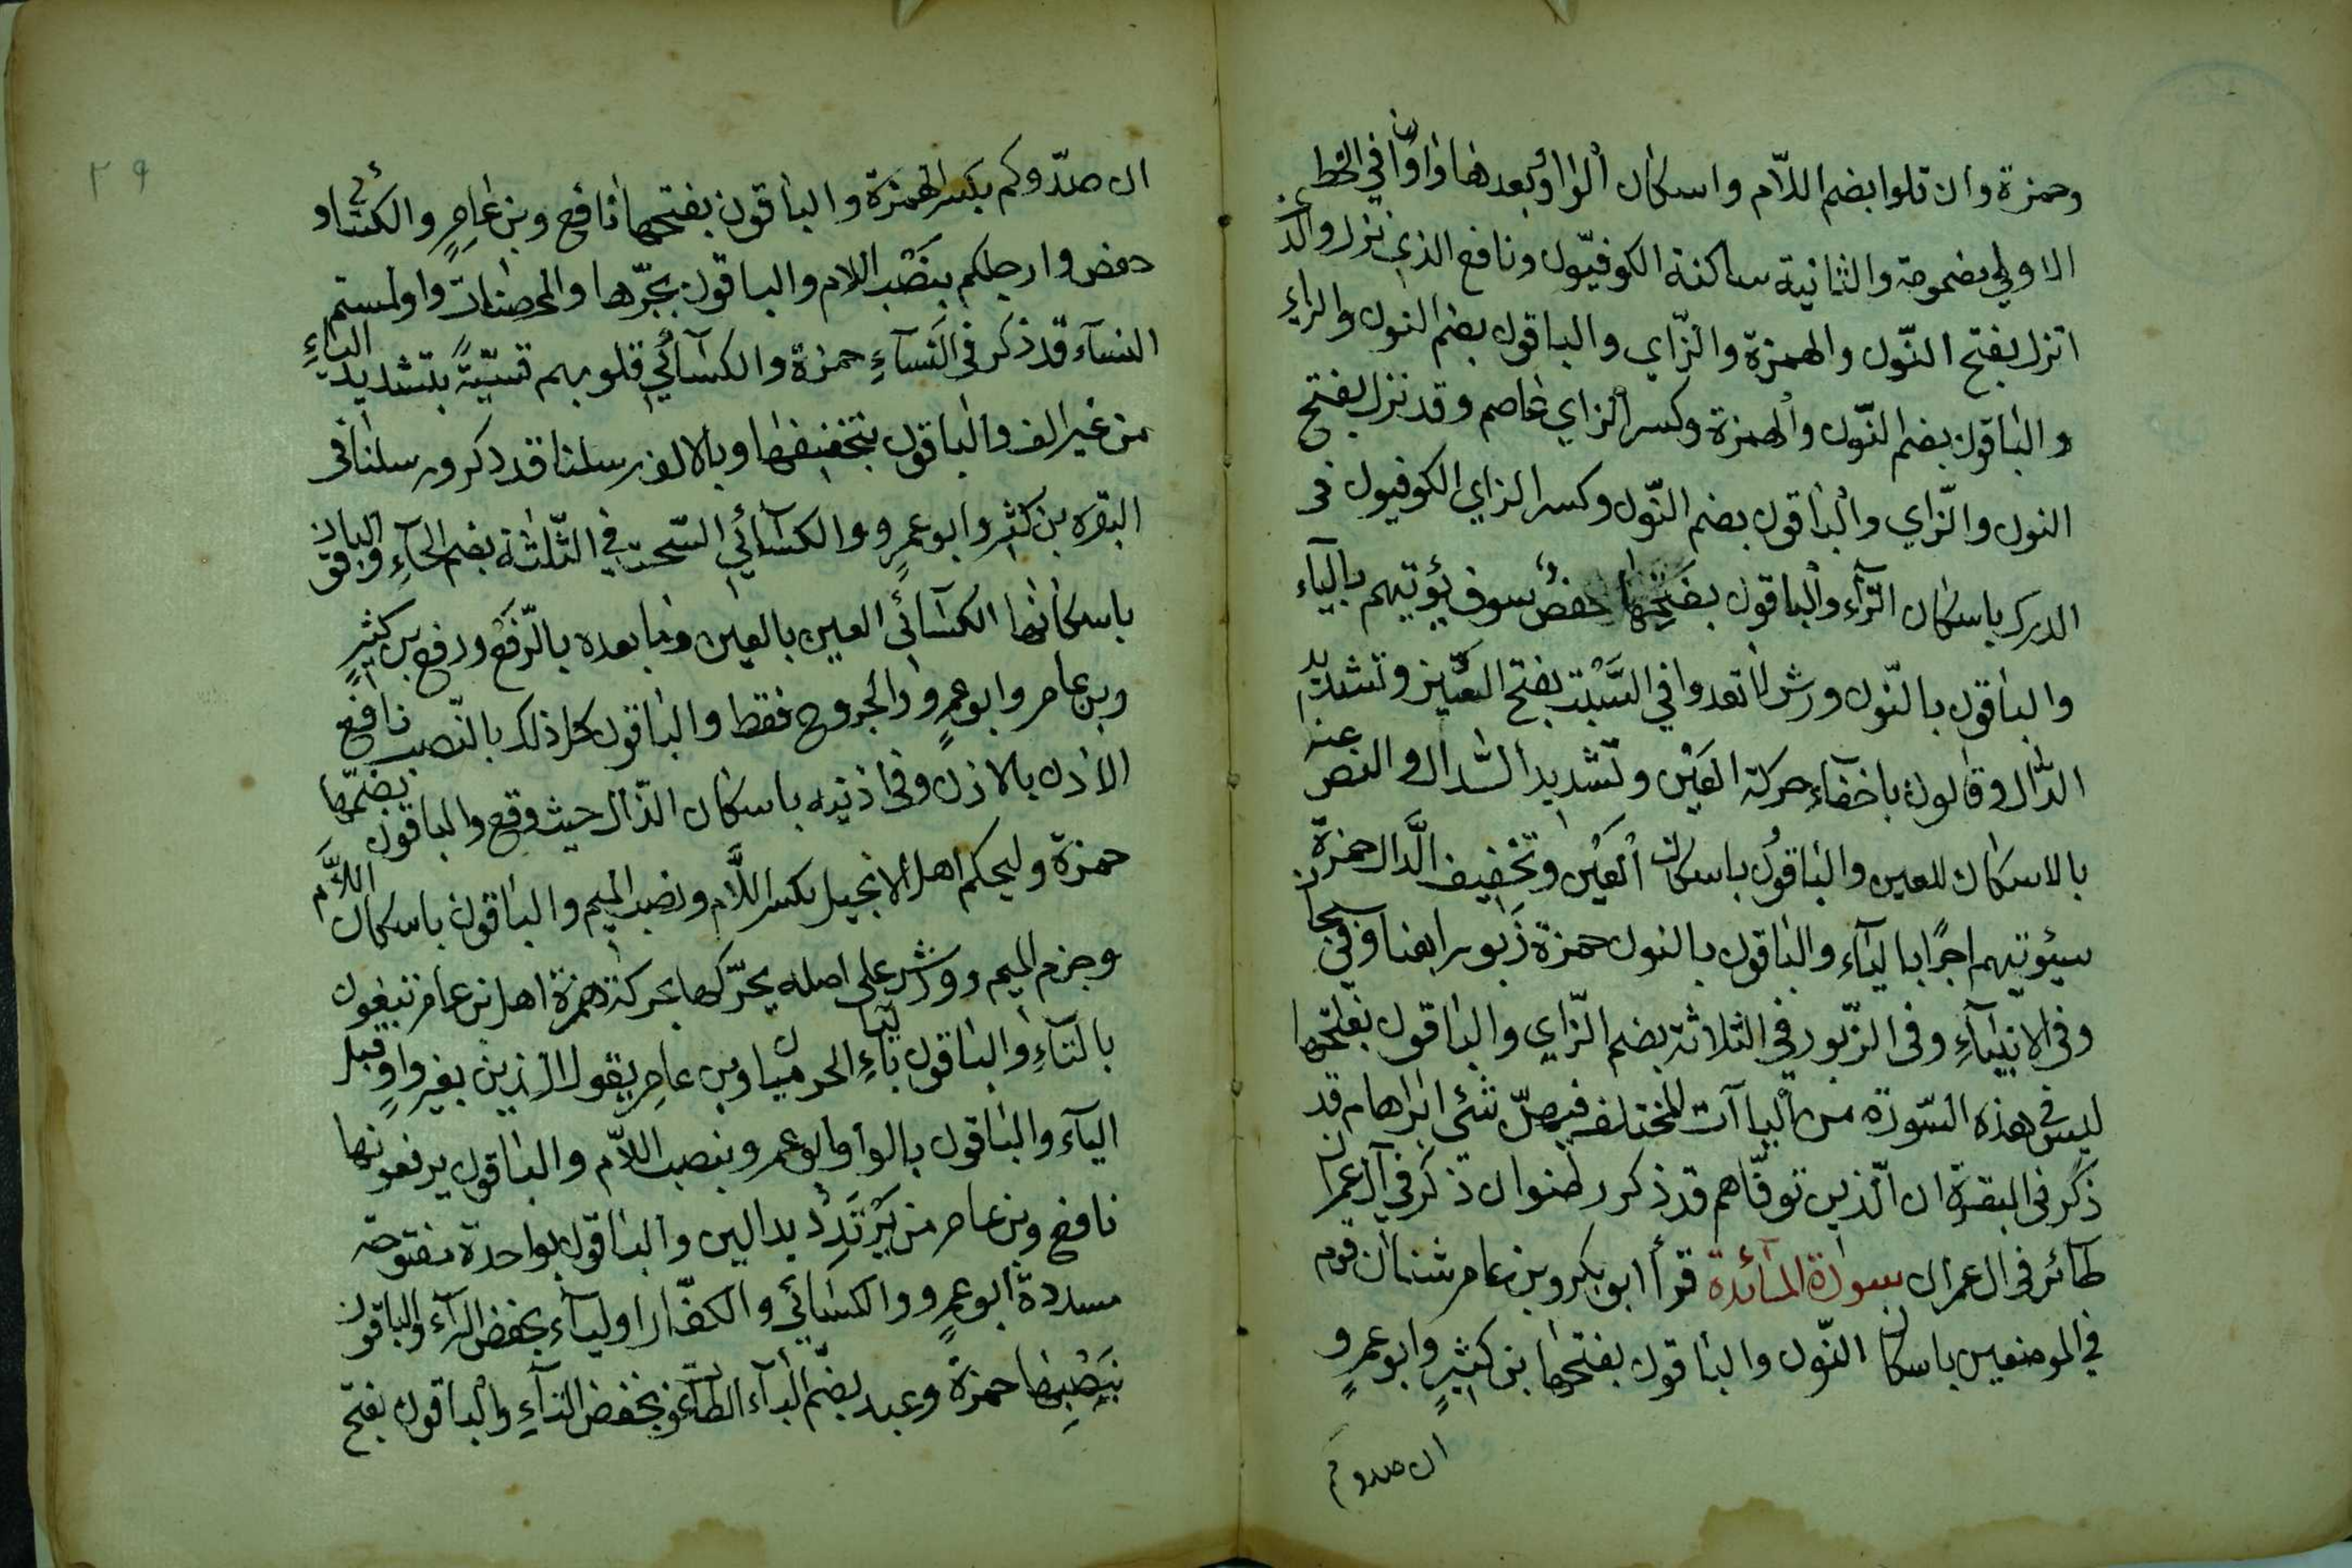 وحمزة وان تلوا بضم اللّام واسكان الواو وبعدها واوان في الخط
الاولى مضمومة والثانية ساكنة الكوفيّون ونافع الذي نزل والذي
انزل بفتح النّون والهمزة والزّاي والباقون بضم النون والزاي
والباقون بضم النّون والهمزة وكسر الزاي عاصم وقد نزل بفتح
النون والزّاي والباقون بضم النّون وكسر الزاي الكوفيون في
الدرك باسكان الرّآء والباقون بفتحها حفصٌ سوف يؤتيهم بالياء
والباقون بالنّون ورش لا تعدوا في السَّبت بفتح العين وتشديد
الدّال وقالون باخفآء حركة العَيْن وتشديد الدال والنص عنه
بالاسكان للعين والباقون باسكان العَيْن وتخفيف الدَّال حمزة
سيئوتيهم اجرًا بالياء والباقون بالنون حمزة زبورا هنا وفي سبحان
وفي الانبيآءِ وفي الزّبور في الثلاثة بضم الزّاي والباقون بفتحها
ليس في هذه السّورة من اليا آت المختلف فيهنّ شئي ابراهام قد
ذكر في البقرة ان الّذين توفّاهم قد ذكر رضوان ذكر في آل عمران
طائر في ال عمران سورة المآئدة قرأ ابو بكر وبن عامر شنئان قوم
في الموضعين باسكان النّون والباقون بفتحها بن كثيرٍ وابو عمرٍو
ان صدوكم
٢٩
ان صدّوكم بكسر الهمزة والباقون بفتحها نافع وبن عامرٍ والكسائي و
حفص وارجلكم بنَصْب اللام والباقون بجرّها والمحصنات واولمستم
النسآء قد ذكر في النَسآءِ حمزة والكسآئي قلوبهم قسيّةً بتشديد الياءِ
من غير الف والباقون بتخفيفها وبالالف رسلنا قد ذكر ورسلنا في
البقره بن كثير وابو عمرٍو والكسآئي السّحت في الثّلثة بضم الحآءِ والباقون
باسكانها الكسآئي العين بالعين وما بعده بالرّفع ورفع بن كثيرٍ
وبن عامر وابو عمرٍو والجروح فقط والباقون كل ذلك بالنّصب نافع
الاذن بالاذن وفي اذنيه باسكان الذّال حيث وقع والباقون بضمّها
حمزة وليحكم اهل الانجيل بكسر اللَّام ونصب الميم والباقون باسكان اللَّام
وجزم الميم وورش على اصله يحرّكها بحركة همزة اهل بن عامر تبغون
بالتآءِ والباقون باليآءِ الحرميان وبن عامرٍ يقول الّذين بغير واوٍ قبل
اليآء والباقون بالواو ابو عمرو بنصب اللّام والباقون يرفعونها
نافع وبن عامر من يَرْتَدِدْ بدالين والباقون بواحدة مفتوحة
مسددة ابو عمرٍو والكسآئي والكفّار اوليآء بخفض الرآء والباقون
بنَصْبِها حمزة وعبد بضّم البآء الطّاغوت بخفض التآءِ والباقون بفتح